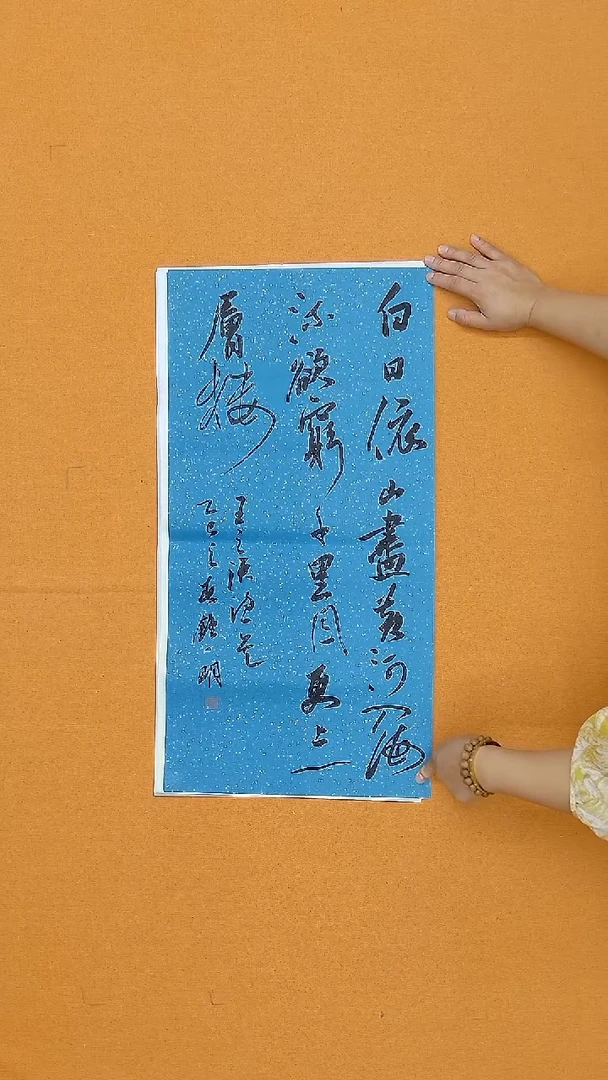 白日依山盡黃河入海
流欲窮千里目更上一
層樓
王之渙詩意
乙巳之春
明